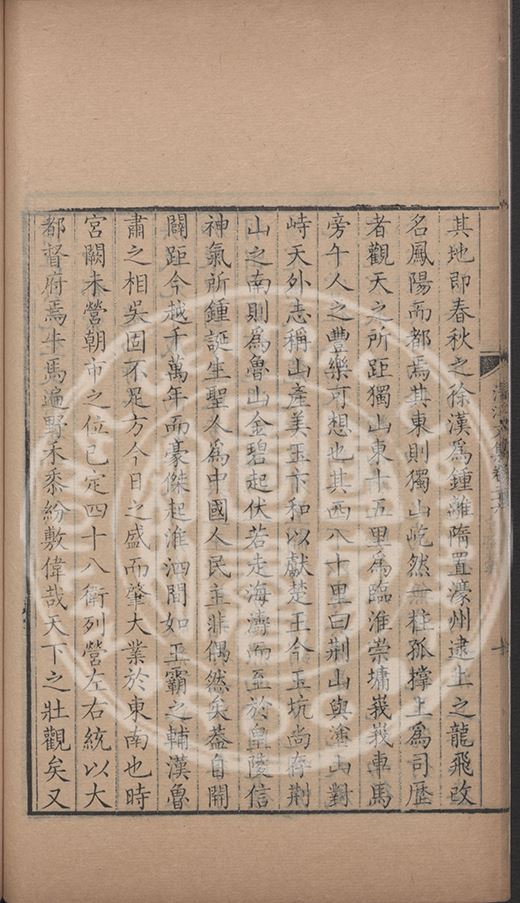 其地即春秋之徐漢為鍾離隋置濠州逮上之龍飛改
名鳳陽而都焉其東則獨山屹然無柱孤撐上為司歷
者觀天之所距獨山東十五里為臨淮崇墉莪莪車馬
旁午人之豐樂可想也其西八十里曰荆山與塗山對
峙天外志稱山產美玉卞和以獻楚王今玉坑尚存荆
山之南則為魯山金碧起伏若走海濤而至於皇陵信
神氣所鍾誕生聖人為中國人民主非偶然矣葢自開
闢距今越千萬年而豪傑起淮泗間如王霸之輔漢魯
肅之相吳固不足方今日之盛而肇大業於東南也時
宮闕未營朝市之位已定四十八衛列營左右統以大
都督府焉牛馬遍野禾黍紛敷偉哉天下之壯觀矣又